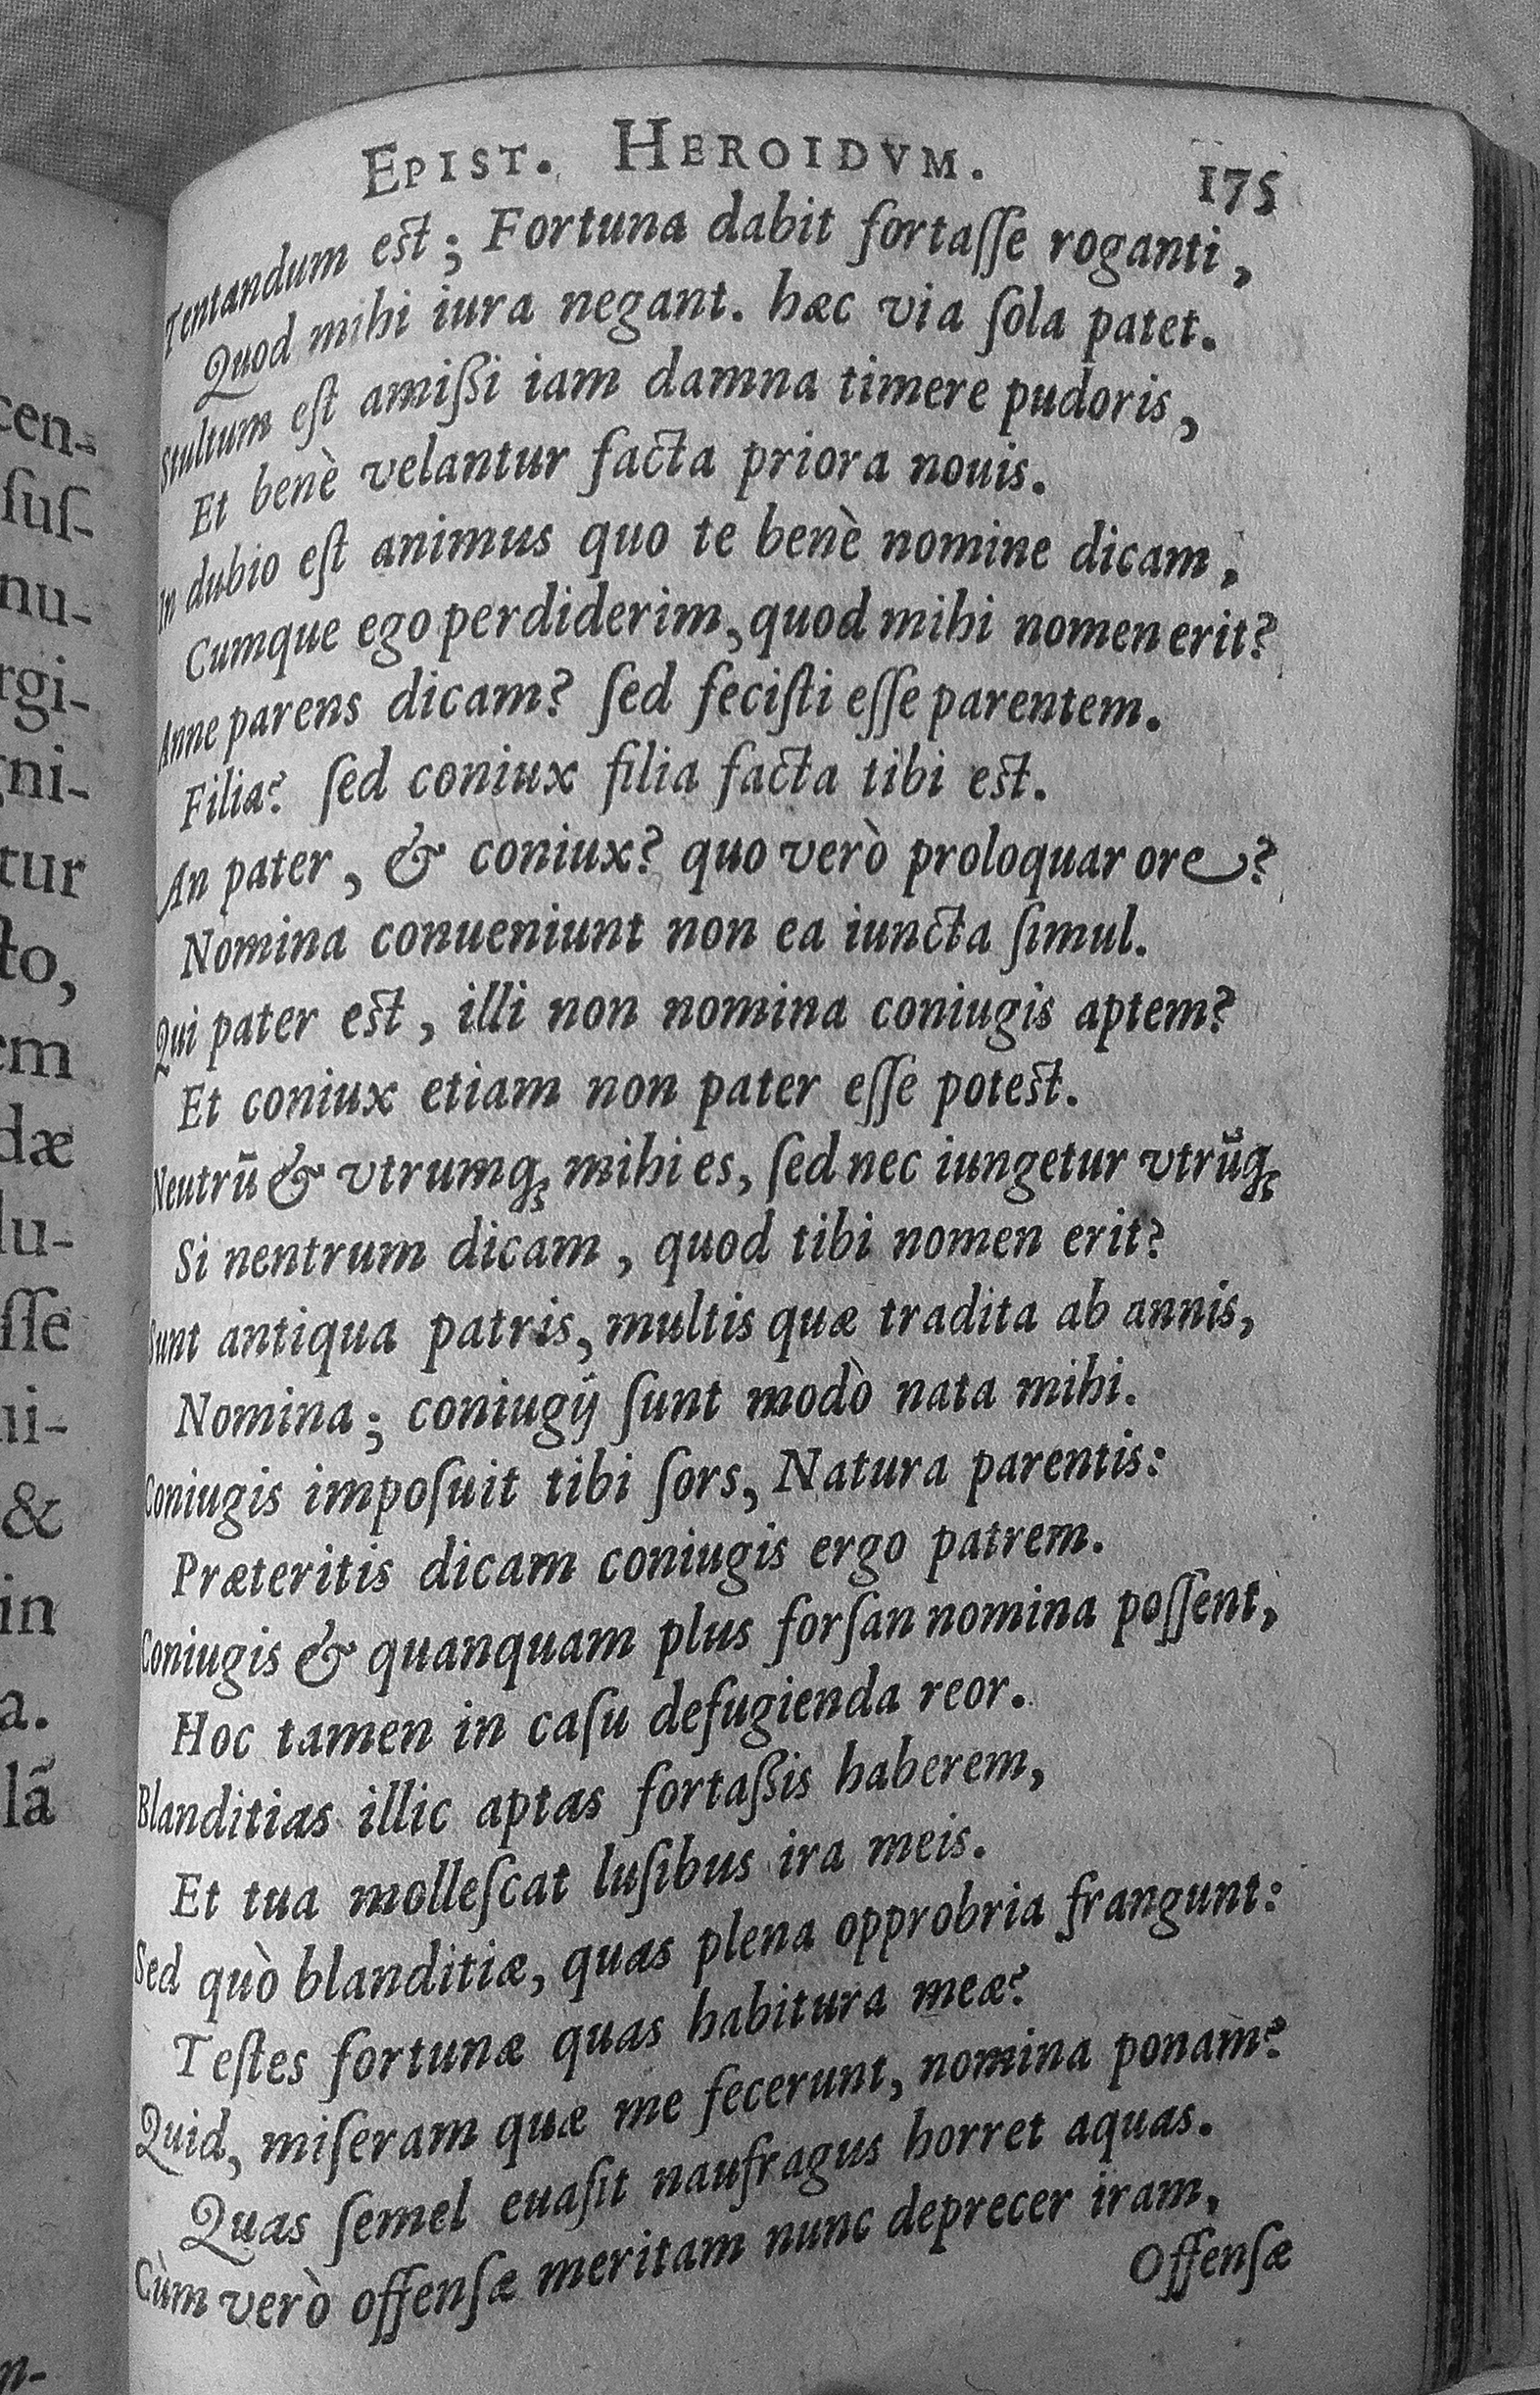 EPIST. HEROIDVM. 175
Tentandum est; Fortuna dabit fortaſſe roganti,
Quod mihi iura negant. hæc via ſola patet.
Stultum eſt amißi iam damna timere pudoris,
Et benè velantur facta priora nouis.
In dubio eſt animus quo te benè nomine dicam,
Cumque ego perdiderim, quod mihi nomen erit?
Anne parens dicam? ſed feciſti eſſe parentem.
Filia? ſed coniux filia facta tibi est.
An pater, & coniux? quo verò proloquar ore?
Nomina conueniunt non ea iuncta ſimul.
Qui pater est, illi non nomina coniugis aptem?
Et coniux etiam non pater eſſe potest.
Neutrū & vtrumq; mihi es, ſed nec iungetur vtrūq;
Si nentrum dicam, quod tibi nomen erit?
Sunt antiqua patris, multis quæ tradita ab annis,
Nomina; coniugij ſunt modò nata mihi.
Coniugis impoſuit tibi ſors, Natura parentis:
Præteritis dicam coniugis ergo patrem.
Coniugis & quanquam plus forſan nomina poſſent,
Hoc tamen in caſu defugienda reor.
Blanditias illic aptas fortaßis haberem,
Et tua molleſcat luſibus ira meis.
Sed quò blanditiæ, quas plena opprobria frangunt:
Teſtes fortunæ quas habitura meæ?
Quid, miſeram quæ me fecerunt, nomina ponam?
Quas ſemel euaſit naufragus horret aquas.
Cùm verò offenſæ meritam nunc deprecer iram,
Offenſæ
cen-
ſuſ-
nu-
rgi-
ni-
tur
to,
em
dæ
lu-
ſſe
ii-
&
in
a.
lā
n-